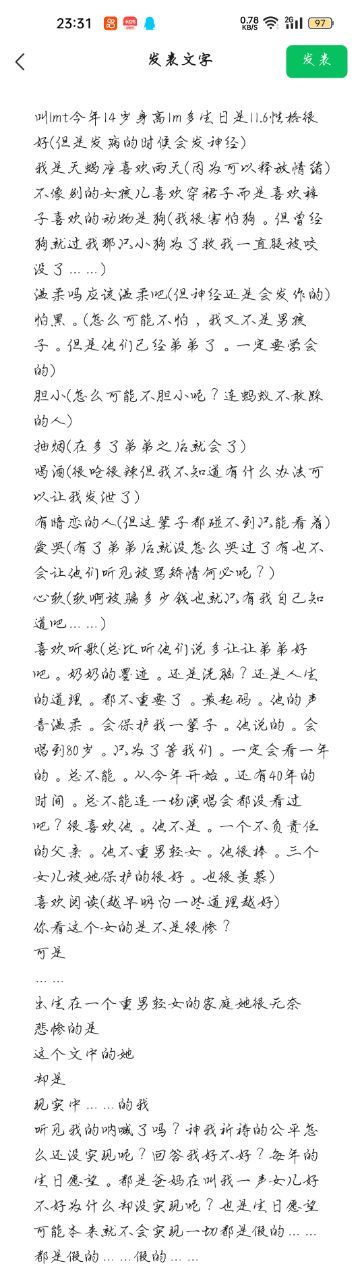 23:31
0.78 KB/S
2G
97
发表文字
发表
叫lmt今年14岁身高1m多生日是11.6性格很
好(但是发病的时候会发神经)
我是天蝎座喜欢雨天(因为可以释放情绪)
不像别的女孩儿喜欢穿裙子而是喜欢裤
子喜欢的动物是狗(我很害怕狗。但曾经
狗就过我那只小狗为了救我一直腿被咬
没了……)
温柔吗应该温柔吧(但神经还是会发作的)
怕黑。(怎么可能不怕，我又不是男孩
子。但是他们已经弟弟了。一定要学会
的)
胆小(怎么可能不胆小呢？连蚂蚁不敢踩
的人)
抽烟(在多了弟弟之后就会了)
喝酒(很呛很辣但我不知道有什么办法可
以让我发泄了)
有暗恋的人(但这辈子都碰不到只能看着)
爱哭(有了弟弟后就没怎么哭过了有也不
会让他们听见被骂矫情何必呢？)
心软(软啊被骗多少钱也就只有我自己知
道吧……)
喜欢听歌(总比听他们说多让让弟弟好
吧。奶奶的墨迹。还是洗脑？还是人生
的道理。都不重要了。最起码。他的声
音温柔。会保护我一辈子。他说的。会
唱到80岁。只为了等我们。一定会看一年
的。总不能。从今年开始。还有40年的
时间。总不能连一场演唱会都没看过
吧？很喜欢他。他不是。一个不负责任
的父亲。他不重男轻女。他很棒。三个
女儿被她保护的很好。也很羡慕)
喜欢阅读(越早明白一些道理越好)
你看这个女的是不是很惨？
可是
……
出生在一个重男轻女的家庭她很无奈
悲惨的是
这个文中的她
却是
现实中……的我
听见我的呐喊了吗？神我祈祷的公平怎
么还没实现呢？回答我好不好？每年的
生日愿望。都是爸妈在叫我一声女儿好
不好为什么却没实现呢？也是生日愿望
可能本来就不会实现一切都是假的……
都是假的……假的……